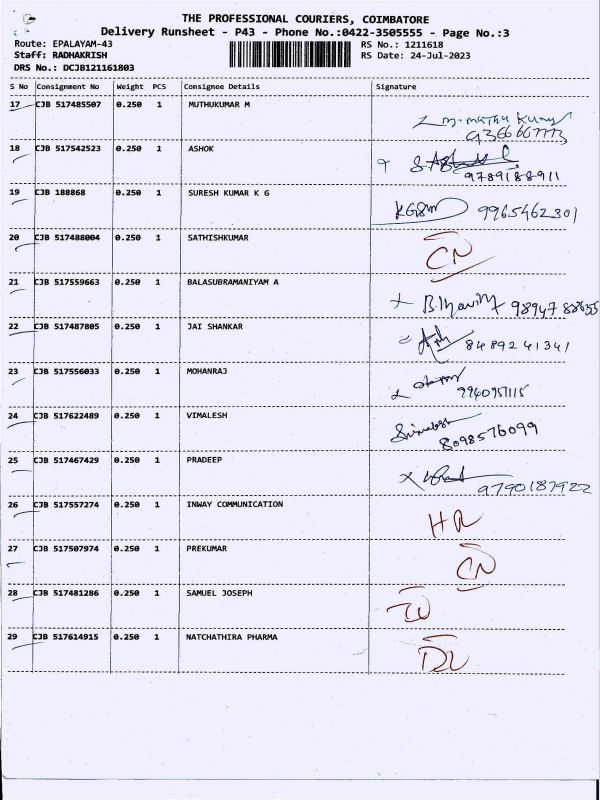 THE PROFESSIONAL COURIERS, COIMBATORE
Delivery Runsheet - P43 - Phone No.:0422-3505555 - Page No.:3
Route: EPALAYAM-43 RS No.: 1211618
Staff: RADHAKRISH RS Date: 24-Jul-2023
DRS No.: DCJB121161803
S No Consignment No Weight PCS Consignee Details Signature
17 CJB 517485507 0.250 1 MUTHUKUMAR M
18 CJB 517542523 0.250 1 ASHOK
9789188911
19 CJB 188868 0.250 1 SURESH KUMAR K G
9965462301
20 CJB 517488004 0.250 1 SATHISHKUMAR CN
21 CJB 517559663 0.250 1 BALASUBRAMANIYAM A
22 CJB 517487805 0.250 1 JAI SHANKAR
8489241341
23 CJB 517556033 0.250 1 MOHANRAJ
24 CJB 517622489 0.250 1 VIMALESH
8098576099
25 CJB 517467429 0.250 1 PRADEEP
9790187922
26 CJB 517557274 0.250 1 INWAY COMMUNICATION
27 CJB 517507974 0.250 1 PREKUMAR CN
28 CJB 517481286 0.250 1 SAMUEL JOSEPH
29 CJB 517614915 0.250 1 NATCHATHIRA PHARMA